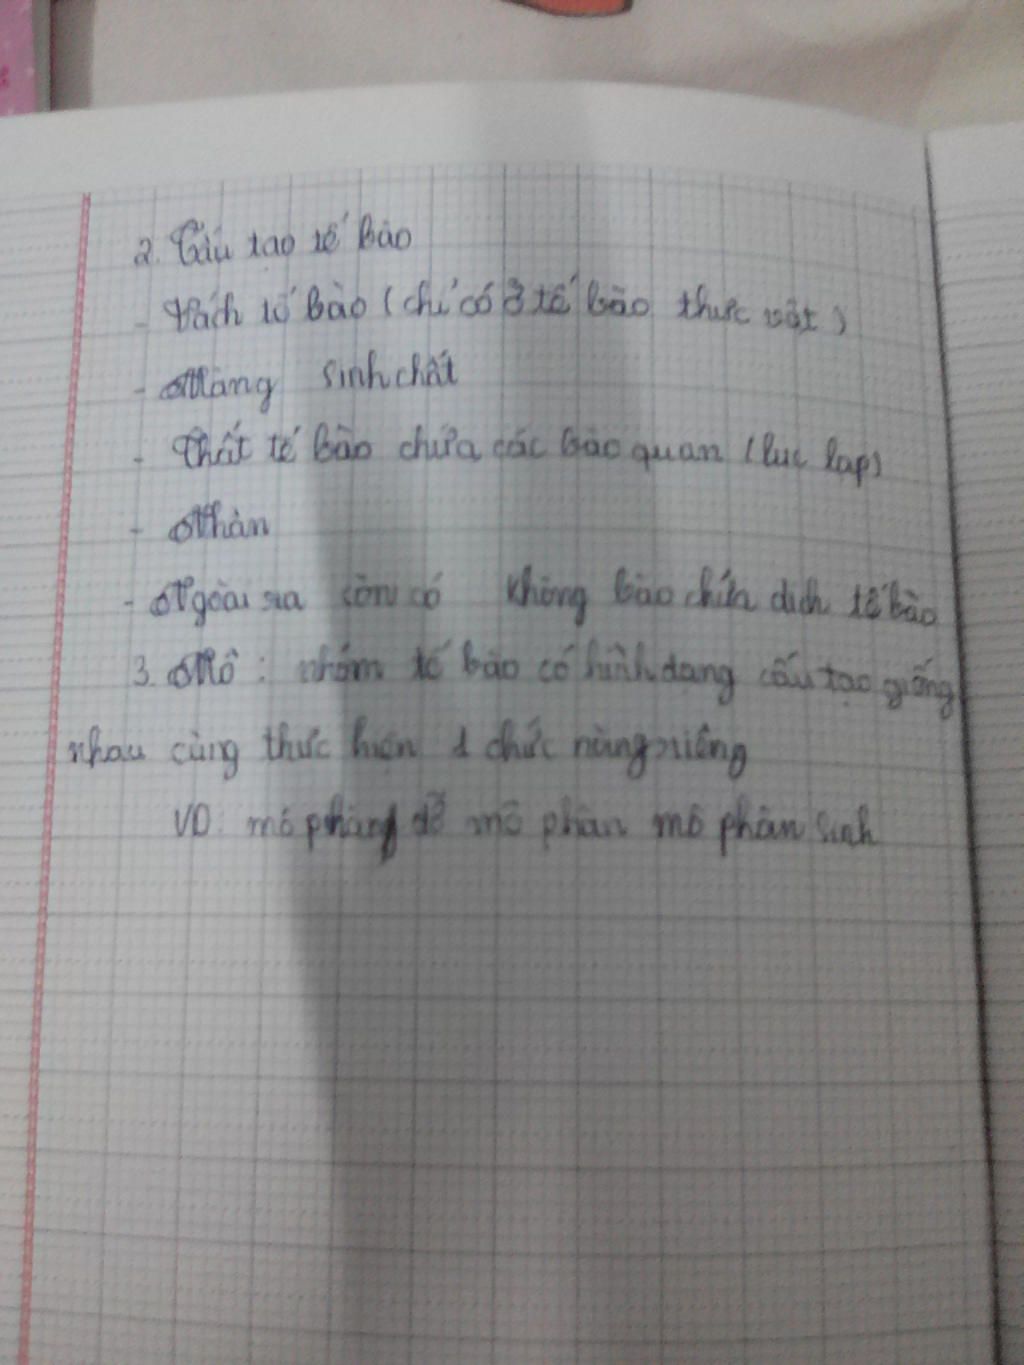 2. Cấu tạo tế bào
- Vách tế bào (chỉ có ở tế bào thực vật)
- Màng sinh chất
- Chất tế bào chứa các bào quan (lục lạp)
- Nhân
- Ngoài ra còn có không bào chứa dịch tế bào
3. Mô: nhóm tế bào có hình dạng cấu tạo giống
nhau cùng thực hiện 1 chức năng riêng
VD: mô phân mô phân sinh